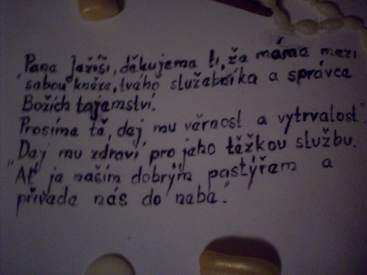 Pane Ježíši, děkujeme ti, že máme mezi
"sebou" kněze, tvého služebníka a správce
Božích tajemství.
Prosíme tě, dej mu věrnost a vytrvalost".
"Dej mu zdraví pro jeho těžkou službu.
"Ať je naším dobrým pastýřem a
přivede nás do nebe."